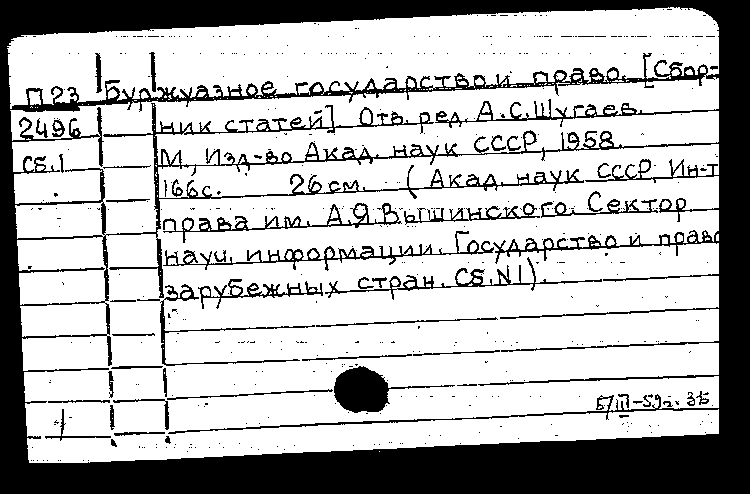 П23 Буржуазное государство и право. [Сбор-
2496 ник статей]. Отв. ред. А.С.Шугаев.
Сб.1 М., Изд-во Акад. наук СССР, 1958.
166с. 26см. (Акад. наук СССР. Ин-т
права им. А.Я.Вышинского. Сектор
науч. информации. Государство и право
зарубежных стран. Сб.N1).
5/III-59г. 35